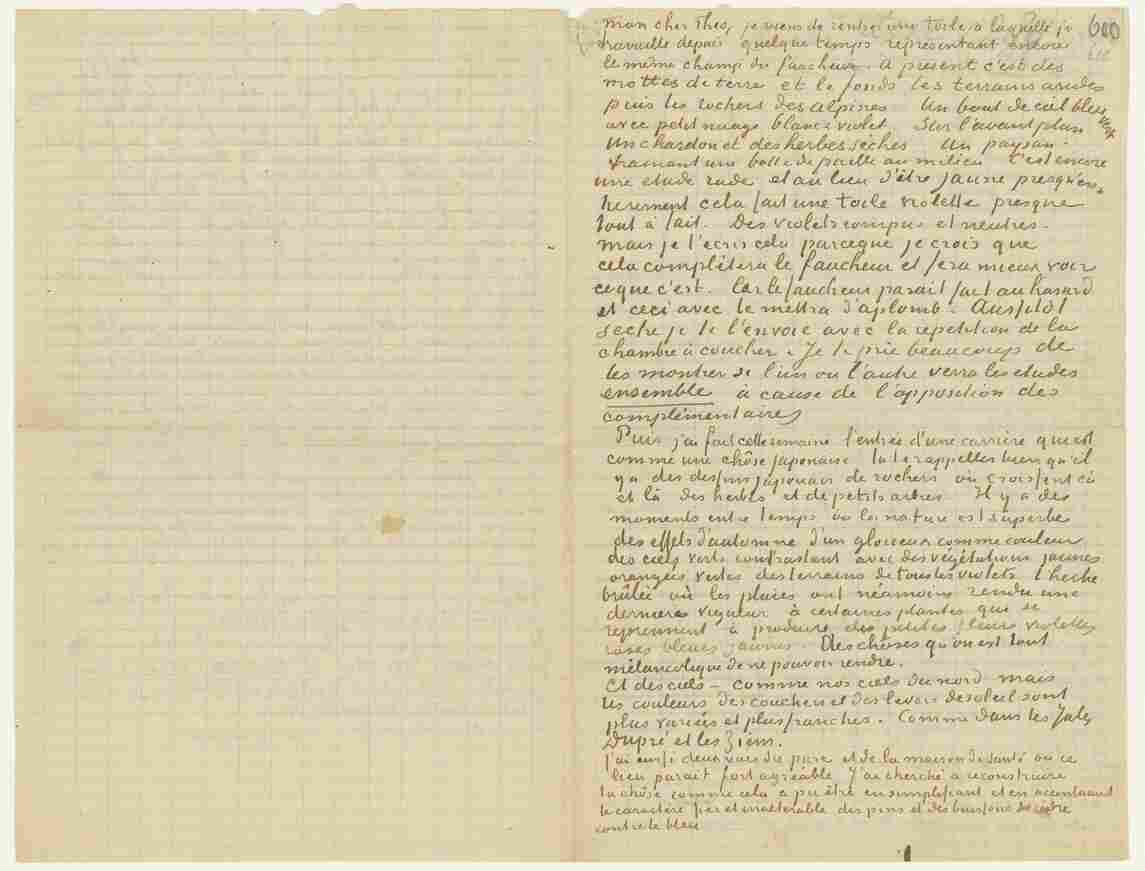 mon cher Theo, je viens de rentrer une toile à laquelle je
600
travaille depuis quelque temps représentant encore
le même champ du faucheur. A présent c'est des
mottes de terre et le fonds les terrains arides
puis les rochers des Alpines. Un bout de ciel bleu
vert
avec petit nuage blanc & violet. Sur l'avant plan
Un chardon et des herbes sèches Un paysan
trainant une botte de paille au milieu C'est encore
une etude rude et au lieu d'être jaune presqu'en-
tierement cela fait une toile violette presque
tout à fait. Des violets rompus et neutres.
Mais je t'écris cela parceque je crois que
cela complètera le faucheur et fera mieux voir
ce que c'est. Car le faucheur parait fait au hasard
et ceci avec le mettra d'aplomb. Aussitôt
seche je te l'envoie avec la repetition de la
chambre à coucher. Je te prie beaucoup de
les montrer si l'un ou l'autre verra les etudes
ensemble à cause de l'opposition des
complémentaires
Puis j'ai fait cette semaine l'entrée d'une carrière qui est
comme une chôse japonaise tu te rappelles bien qu'il
y a des dessins japonais de rochers où croissent çà
et là des herbes et de petits arbres. Il y a des
moments entre temps où la nature est superbe
des effets d'automne d'un glorieux comme couleur
des ciels verts contrastant avec des végétations jaunes
orangées vertes des terrains de tous les violets l'herbe
brûlée où les pluies ont néamoins rendu une
derniere vigueur à certaines plantes qui se
reprennent à produire des petites fleurs violettes
roses bleues jaunes. Des chôses qu'on est tout
mélancolique de ne pouvoir rendre.
Et des ciels – comme nos ciels du nord mais
les couleurs des couchers et des levers de soleil sont
plus variées et plus franches. Comme dans les Jules
Dupré et les Ziem.
J'ai aussi deux vues du parc et de la maison de santé où ce
lieu parait fort agréable J'ai cherché à reconstruire
la chôse comme cela a pu être en simplifiant et en accentuant
le caractère fier et inalterable des pins et des buissons de cèdre
contre le bleu